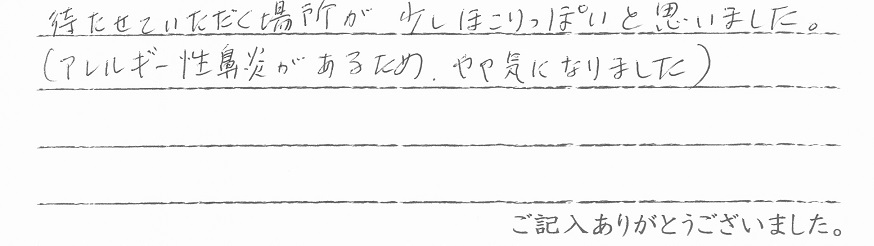 待たせていただく場所が 少しほこりっぽいと思いました。
(アレルギー性鼻炎があるため、やや気になりました)
ご記入ありがとうございました。